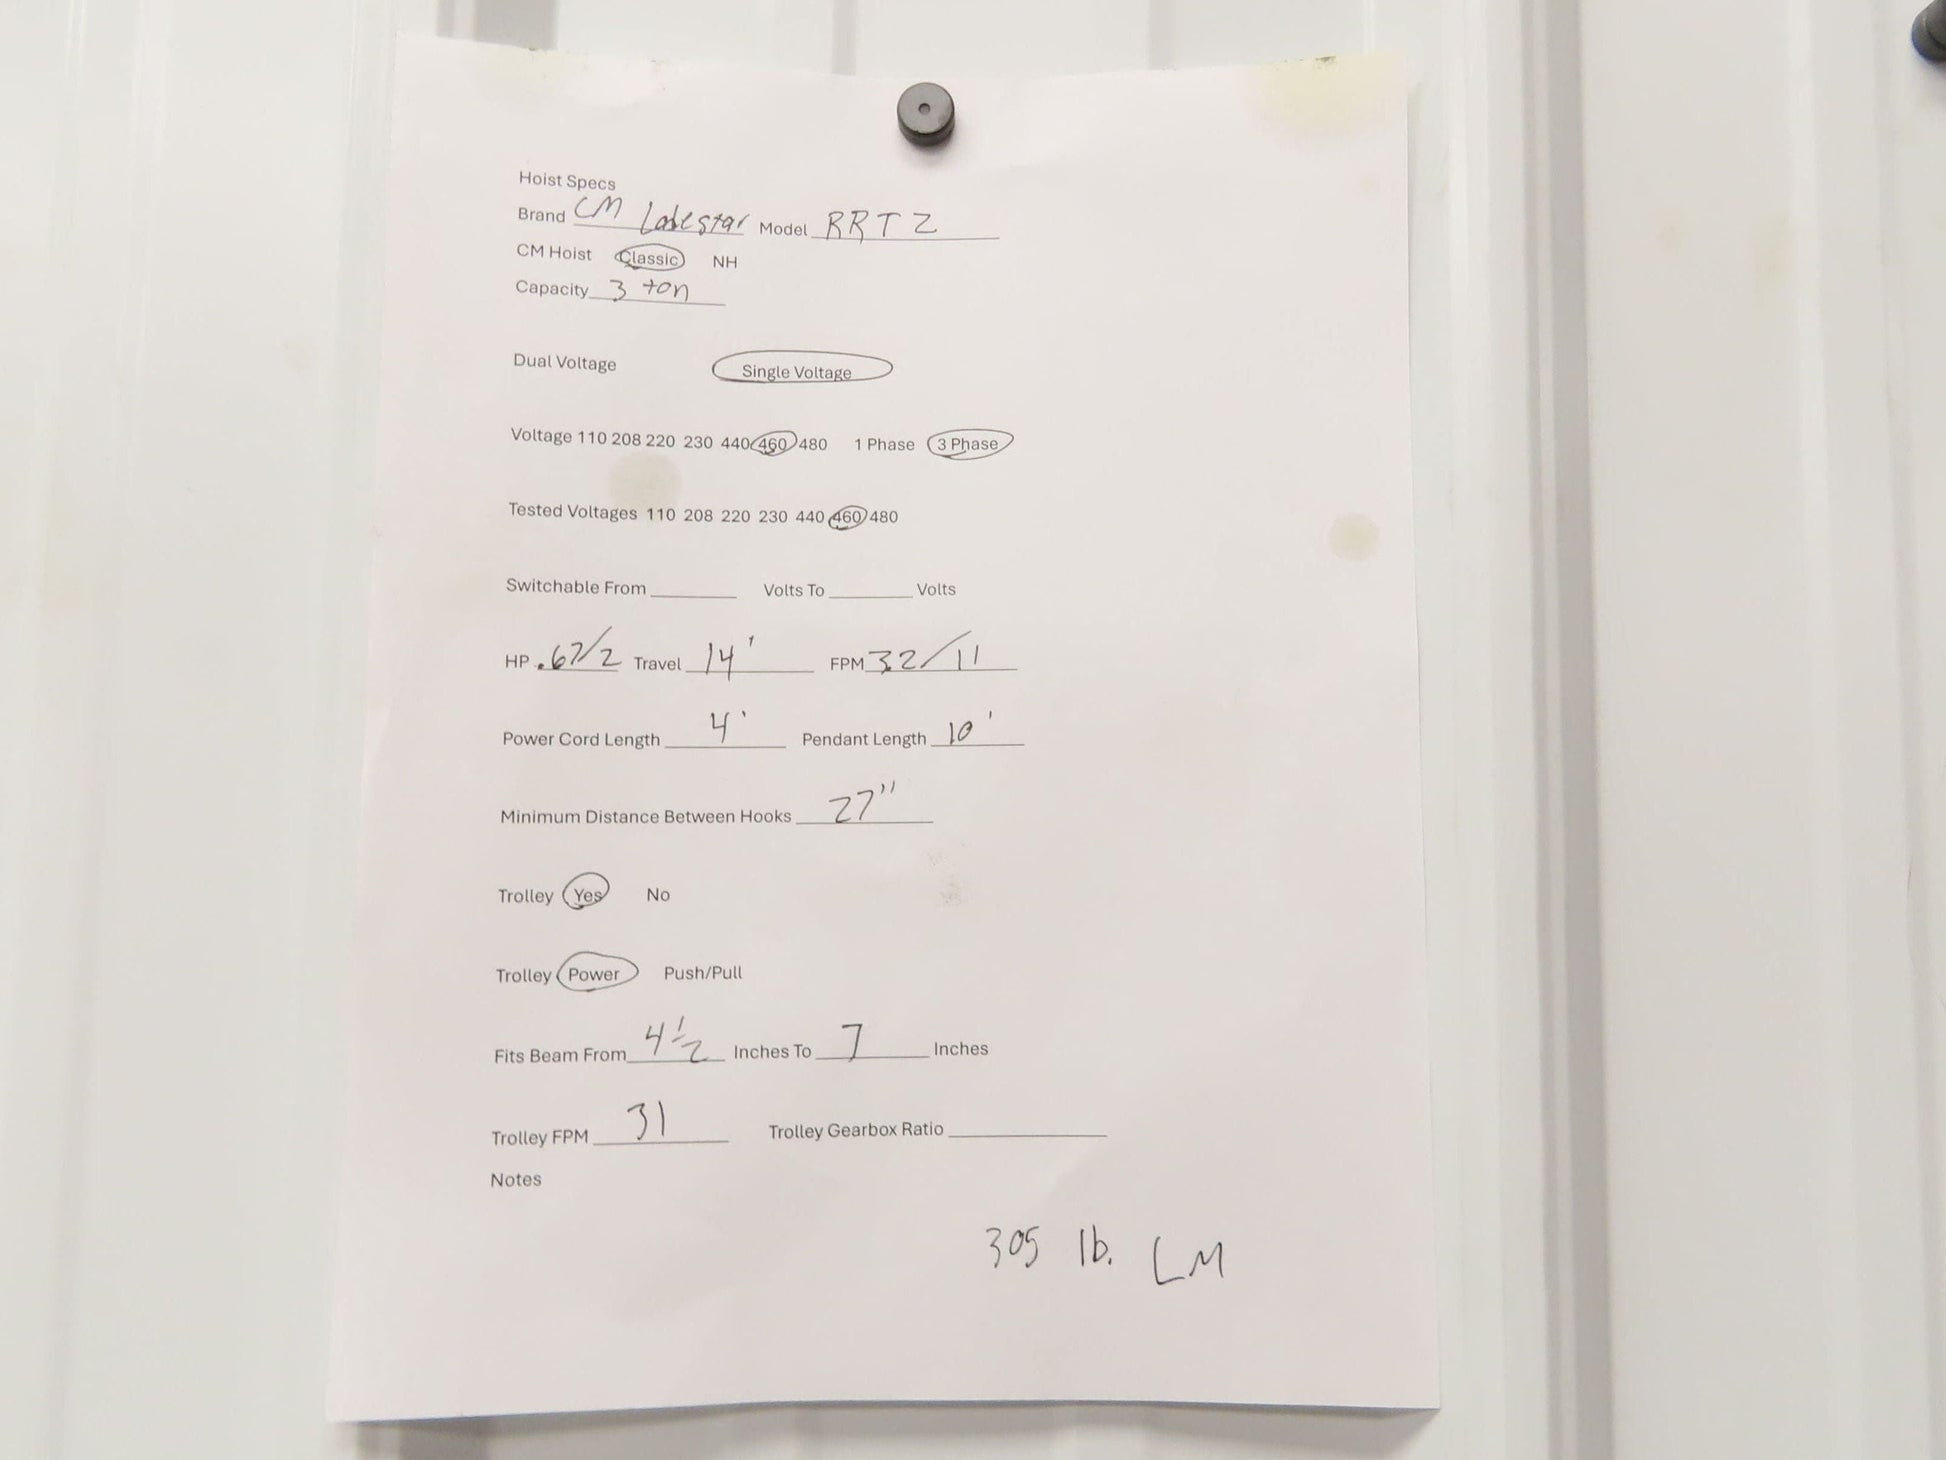 Hoist Specs
Brand CM Lodestar Model RRT2
CM Hoist Classic NH
Capacity 3 ton
Dual Voltage Single Voltage
Voltage 110 208 220 230 440 460 480 1 Phase 3 Phase
Tested Voltages 110 208 220 230 440 460 480
Switchable From ________ Volts To ________ Volts
HP .67/2 Travel 14' FPM 32/11
Power Cord Length 4' Pendant Length 10'
Minimum Distance Between Hooks 27"
Trolley Yes No
Trolley Power Push/Pull
Fits Beam From 4 1/2 Inches To 7 Inches
Trolley FPM 31 Trolley Gearbox Ratio ________
Notes
305 lb. LM